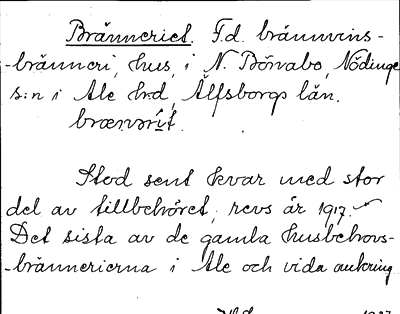 Bränneriet. F.d. brännvins-
-bränneri, hus, i N. Dörvabo, Nödinge
s:n i Ale hrd, Älfsborgs län.
brænərít.
Stod sent kvar med stor
del av tillbehöret, revs år 1917.
Det sista av de gamla husbehovs-
-brännerierna i Ale och vida omkring